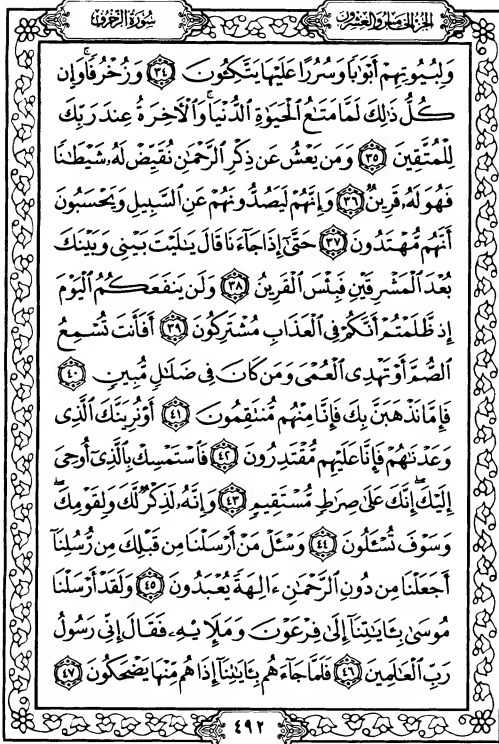 سُورَةُ الزُّخْرُفِ
الجُزْءُ الخَامِسُ وَالعِشْرُونَ
وَلِبُيُوتِهِمْ أَبْوَٰبًا وَسُرُرًا عَلَيْهَا يَتَّكِـُٔونَ ٣٤ وَزُخْرُفًا ۚ وَإِن
كُلُّ ذَٰلِكَ لَمَّا مَتَـٰعُ ٱلْحَيَوٰةِ ٱلدُّنْيَا ۚ وَٱلْـَٔاخِرَةُ عِندَ رَبِّكَ
لِلْمُتَّقِينَ ٣٥ وَمَن يَعْشُ عَن ذِكْرِ ٱلرَّحْمَـٰنِ نُقَيِّضْ لَهُۥ شَيْطَـٰنًا
فَهُوَ لَهُۥ قَرِينٌ ٣٦ وَإِنَّهُمْ لَيَصُدُّونَهُمْ عَنِ ٱلسَّبِيلِ وَيَحْسَبُونَ
أَنَّهُم مُّهْتَدُونَ ٣٧ حَتَّىٰٓ إِذَا جَآءَنَا قَالَ يَـٰلَيْتَ بَيْنِى وَبَيْنَكَ
بُعْدَ ٱلْمَشْرِقَيْنِ فَبِئْسَ ٱلْقَرِينُ ٣٨ وَلَن يَنفَعَكُمُ ٱلْيَوْمَ
إِذ ظَّلَمْتُمْ أَنَّكُمْ فِى ٱلْعَذَابِ مُشْتَرِكُونَ ٣٩ أَفَأَنتَ تُسْمِعُ
ٱلصُّمَّ أَوْ تَهْدِى ٱلْعُمْىَ وَمَن كَانَ فِى ضَلَـٰلٍ مُّبِينٍ ٤٠
فَإِمَّا نَذْهَبَنَّ بِكَ فَإِنَّا مِنْهُم مُّنتَقِمُونَ ٤١ أَوْ نُرِيَنَّكَ ٱلَّذِى
وَعَدْنَـٰهُمْ فَإِنَّا عَلَيْهِم مُّقْتَدِرُونَ ٤٢ فَٱسْتَمْسِكْ بِٱلَّذِىٓ أُوحِىَ
إِلَيْكَ ۖ إِنَّكَ عَلَىٰ صِرَٰطٍ مُّسْتَقِيمٍ ٤٣ وَإِنَّهُۥ لَذِكْرٌ لَّكَ وَلِقَوْمِكَ ۖ
وَسَوْفَ تُسْـَٔلُونَ ٤٤ وَسْـَٔلْ مَنْ أَرْسَلْنَا مِن قَبْلِكَ مِن رُّسُلِنَآ
أَجَعَلْنَا مِن دُونِ ٱلرَّحْمَـٰنِ ءَالِهَةً يُعْبَدُونَ ٤٥ وَلَقَدْ أَرْسَلْنَا
مُوسَىٰ بِـَٔايَـٰتِنَآ إِلَىٰ فِرْعَوْنَ وَمَلَإِي۟هِۦ فَقَالَ إِنِّى رَسُولُ
رَبِّ ٱلْعَـٰلَمِينَ ٤٦ فَلَمَّا جَآءَهُم بِـَٔايَـٰتِنَآ إِذَا هُم مِّنْهَا يَضْحَكُونَ ٤٧
٤٩٢